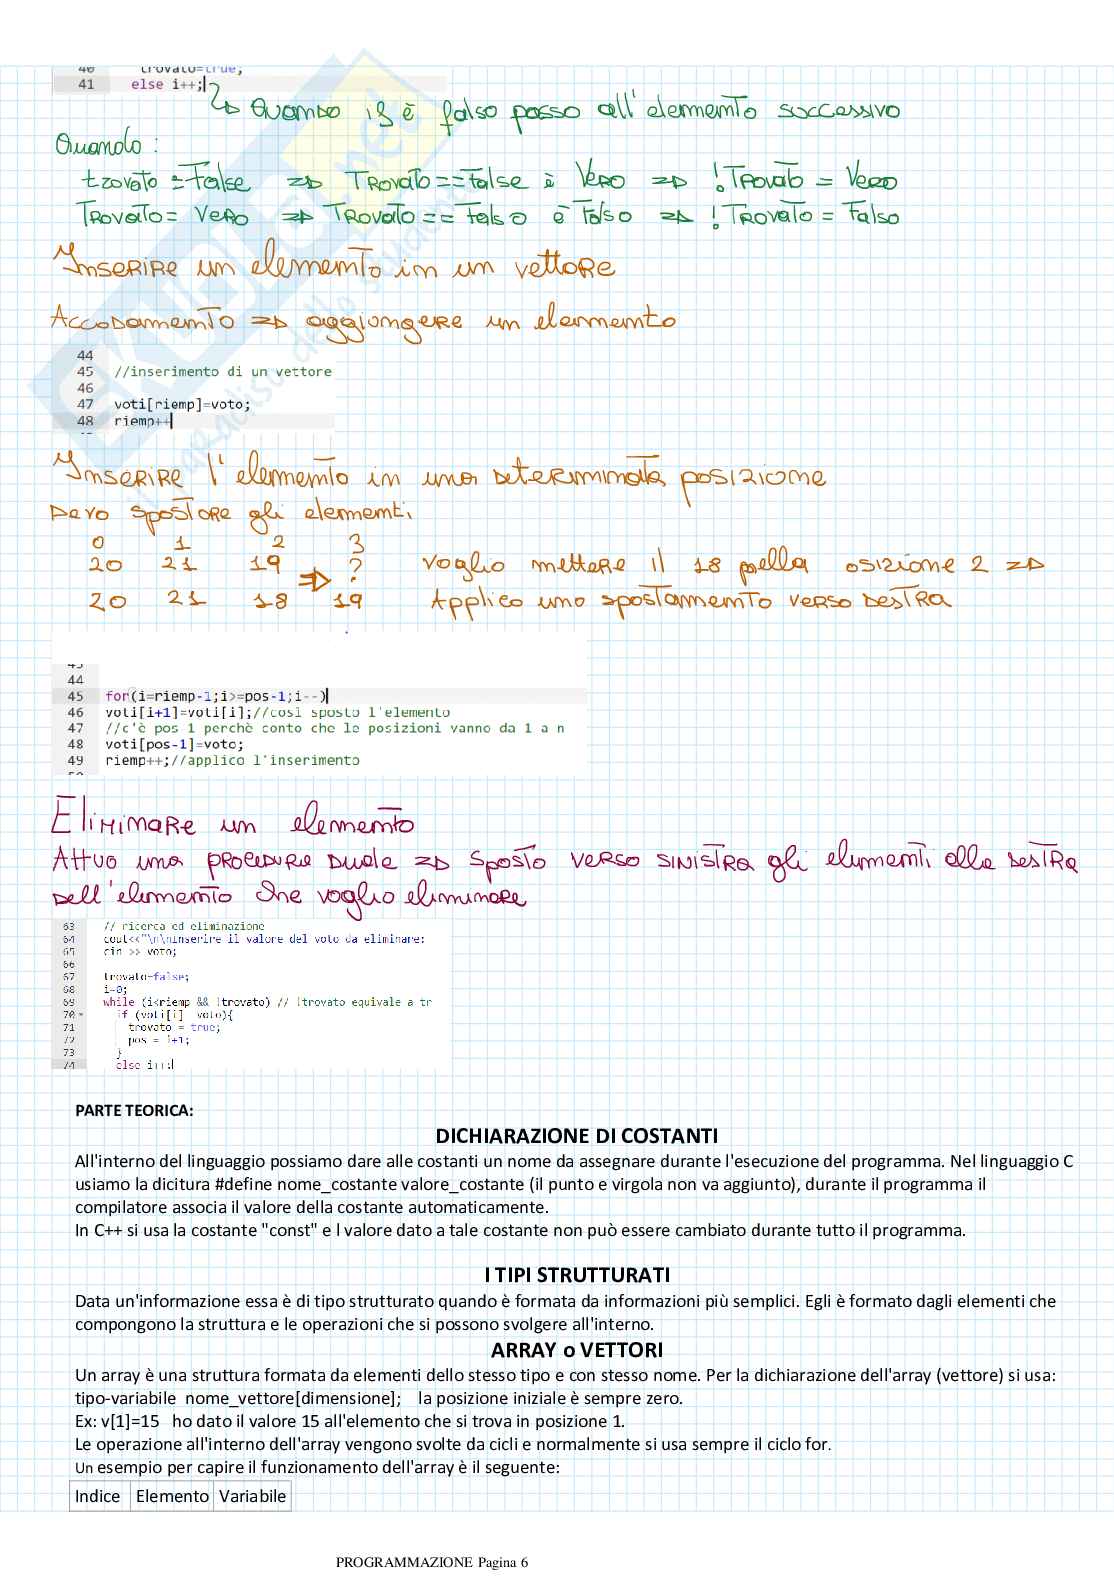 40 trovato=true;
41 else i++;
Quando if è falso passo all'elemento successivo
Quando :
trovato = False => Trovato==False è Vero => !Trovato = Vero
Trovato = Vero => Trovato == Falso è Falso => !Trovato = Falso
Inserire un elemento in un vettore
Accodamento => aggiungere un elemento
44
45 //inserimento di un vettore
46
47 voti[riemp]=voto;
48 riemp++
Inserire l'elemento in una determinata posizione
Devo spostare gli elementi
0 1 2 3
20 21 19 => ? voglio mettere il 18 nella osizione 2 =>
20 21 18 19 Applico uno spostamento verso destra
43
44
45 for(i=riemp-1;i>=pos-1;i--)
46 voti[i+1]=voti[i];//così sposto l'elemento
47 //c'è pos 1 perchè conto che le posizioni vanno da 1 a n
48 voti[pos-1]=voto;
49 riemp++;//applico l'inserimento
Eliminare un elemento
Attuo una procedura duale => sposto verso sinistra gli elementi alla destra
dell'elemento che voglio eliminare
63 // ricerca ed eliminazione
64 cout<<"\n\ninserire il valore del voto da eliminare:
65 cin >> voto;
66
67 trovato=false;
68 i=0;
69 while (i<riemp && !trovato) // !trovato equivale a tr
70 if (voti[i] voto){
71 trovato = true;
72 pos = i+1;
73 }
74 else i++;
PARTE TEORICA:
DICHIARAZIONE DI COSTANTI
All'interno del linguaggio possiamo dare alle costanti un nome da assegnare durante l'esecuzione del programma. Nel linguaggio C
usiamo la dicitura #define nome_costante valore_costante (il punto e virgola non va aggiunto), durante il programma il
compilatore associa il valore della costante automaticamente.
In C++ si usa la costante "const" e l valore dato a tale costante non può essere cambiato durante tutto il programma.
I TIPI STRUTTURATI
Data un'informazione essa è di tipo strutturato quando è formata da informazioni più semplici. Egli è formato dagli elementi che
compongono la struttura e le operazioni che si possono svolgere all'interno.
ARRAY o VETTORI
Un array è una struttura formata da elementi dello stesso tipo e con stesso nome. Per la dichiarazione dell'array (vettore) si usa:
tipo-variabile nome_vettore[dimensione]; la posizione iniziale è sempre zero.
Ex: v[1]=15 ho dato il valore 15 all'elemento che si trova in posizione 1.
Le operazione all'interno dell'array vengono svolte da cicli e normalmente si usa sempre il ciclo for.
Un esempio per capire il funzionamento dell'array è il seguente:
Indice Elemento Variabile
PROGRAMMAZIONE Pagina 6